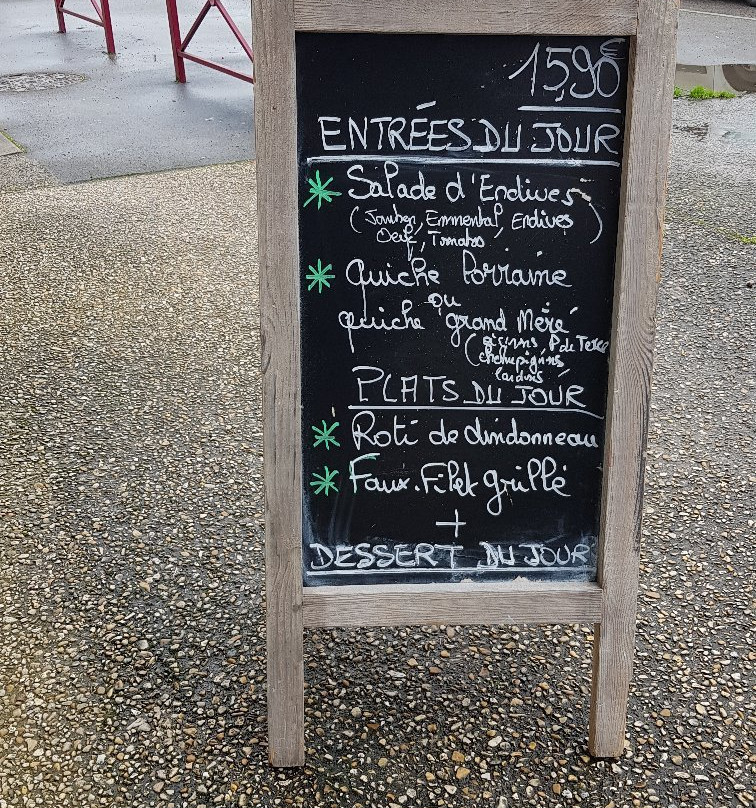 15,90€
ENTRÉES DU JOUR
* Salade d'Endives
(Jambon, Emmental, Endives
Oeuf, Tomates)
* Quiche Lorraine
ou
quiche "grand Mère"
(gésiers, P. de Terre
champignons,
lardons
PLATS DU JOUR
* Roti de dindonneau
* Faux-Filet grillé
+
DESSERT DU JOUR